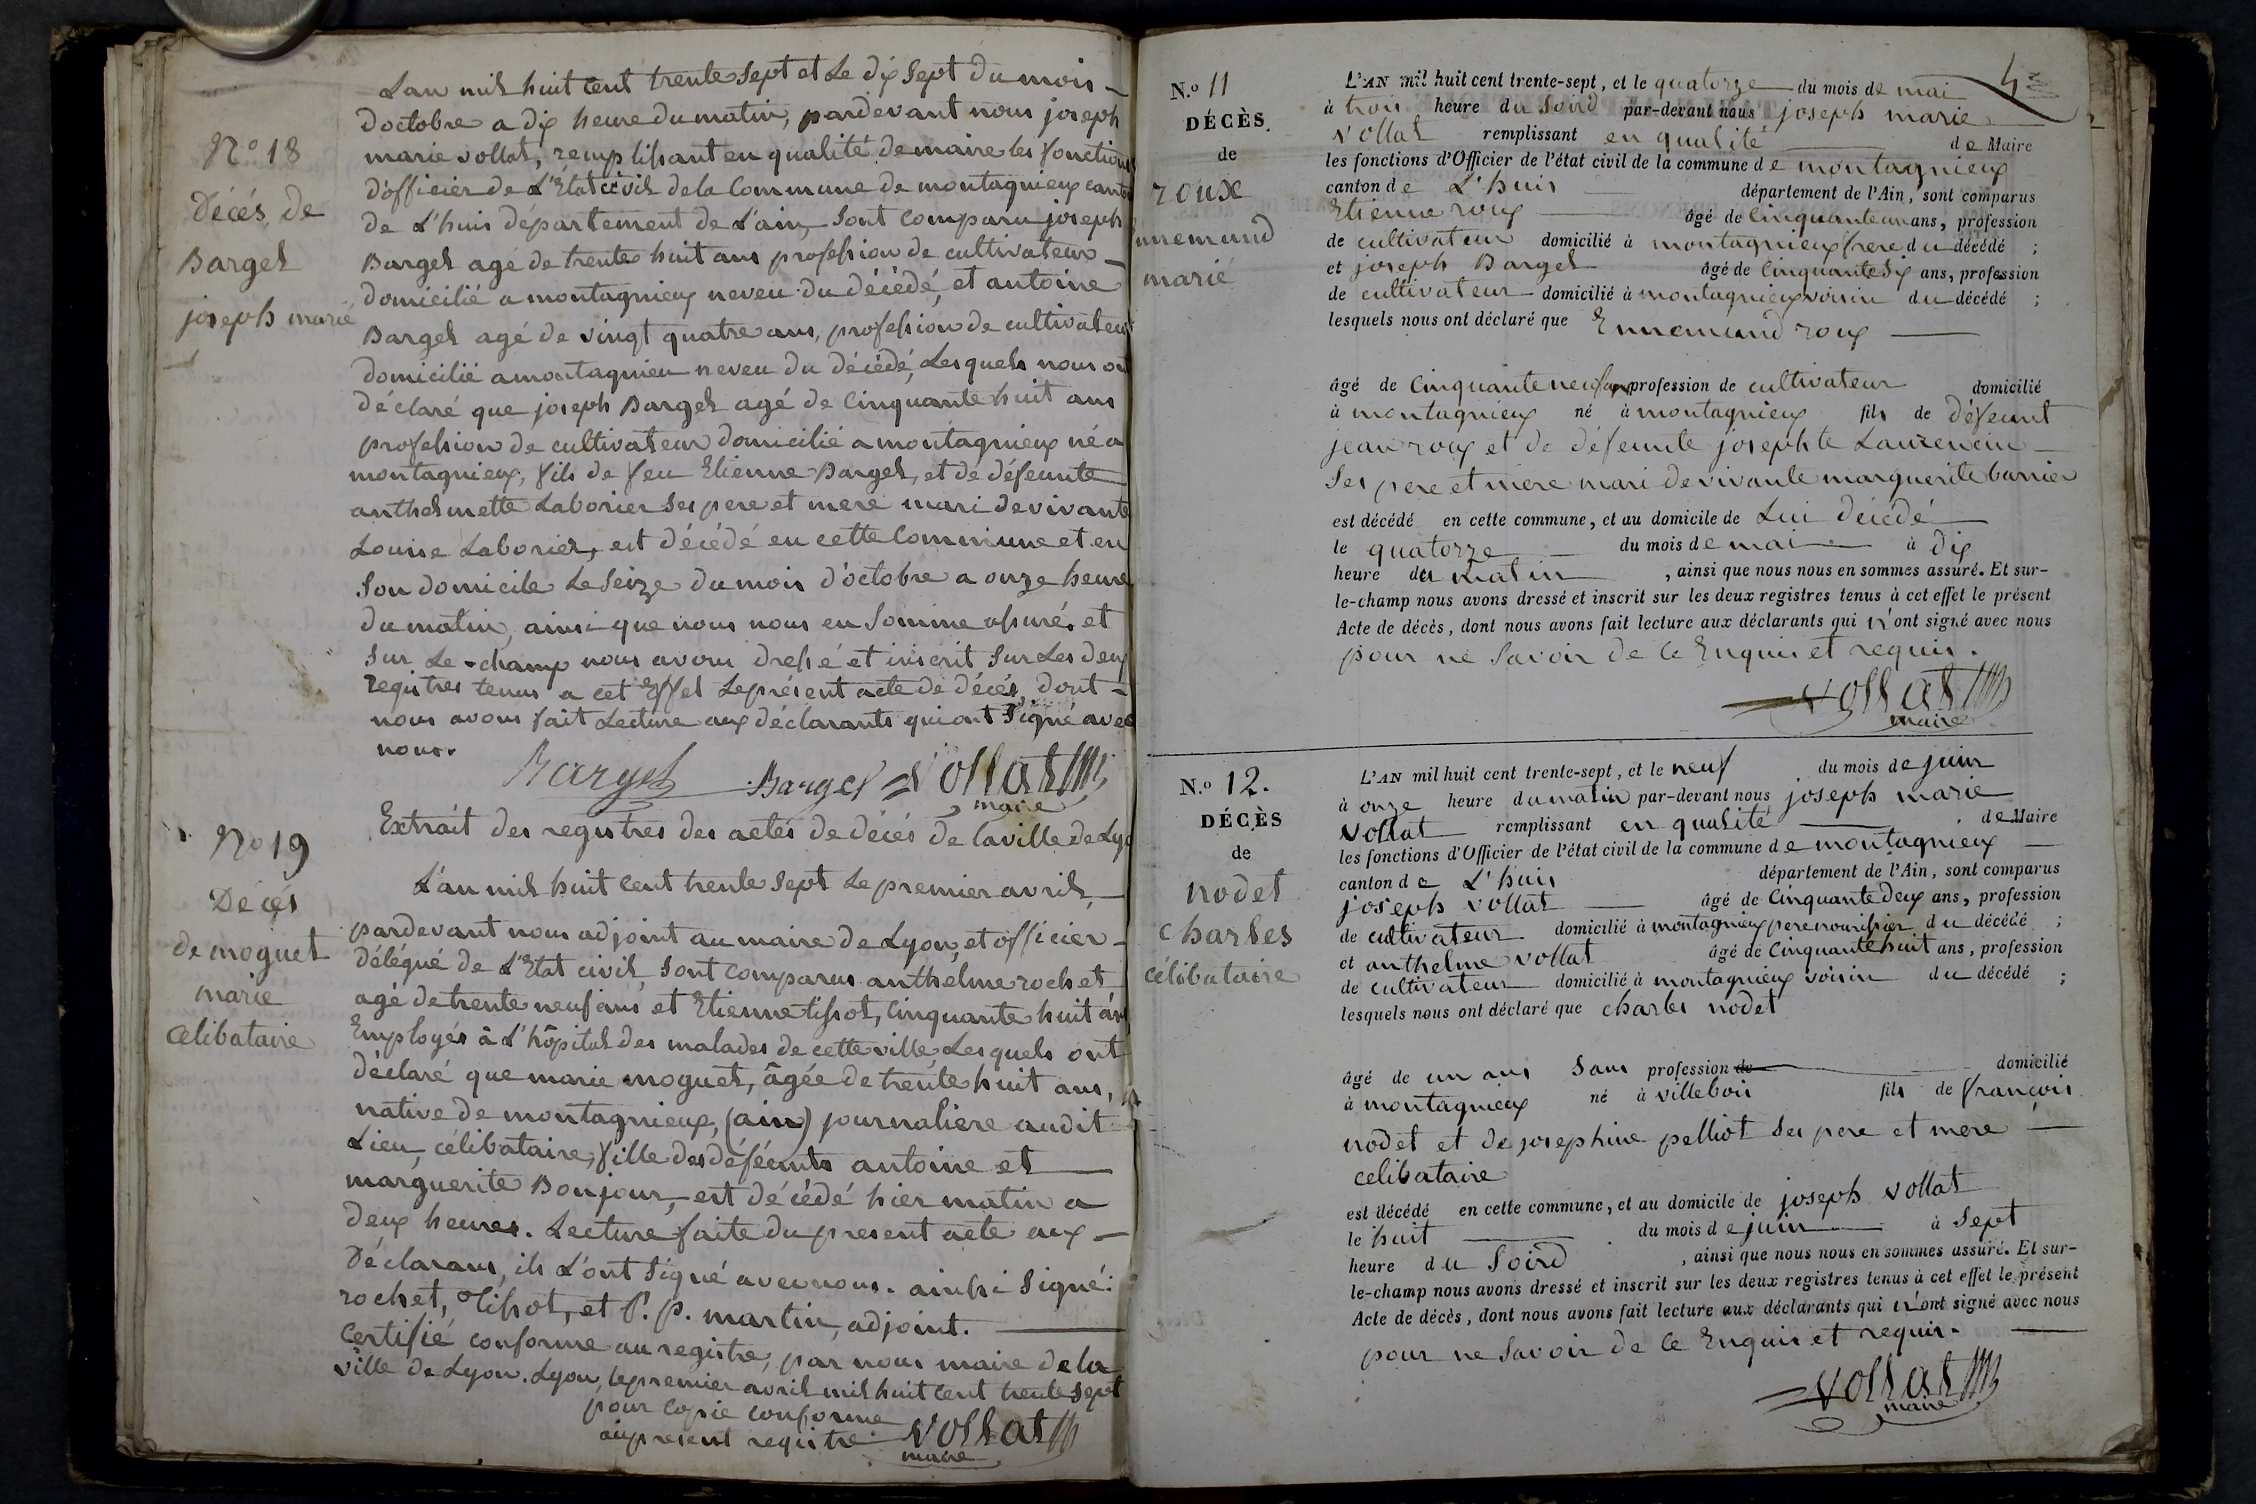 Lan mil huit cent trente sept et Le dix sept du mois
doctobre a dix heure du matin, pardevant nous joseph
marie vollat, remplissant en qualité de maire les fonctions
d'officier de L'État civil de la Commune de montagnieux canton
de L'huis département de L'ain, sont comparu joseph
Barget agé de trente huit ans profession de cultivateur
domicilié a montagnieux neveu du décédé, et antoine
Barget agé de vingt quatre ans, profession de cultivateur
domicilié a montagnieu neveu du décédé, Lesquels nous ont
déclaré que joseph Barget agé de Cinquante huit ans
profession de cultivateur domicilié a montagnieux né a
montagnieux, fils de feu Etienne Barget, et de défeunte
anthelmette Laborier ses pere et mere mari de vivante
Louise Laborier, est décédé en cette Commune et en
son domicile Le Seize du mois d'octobre a onze heure
du matin, ainsi que nous nous en somme assuré, et
sur Le-champ nous avons dressé et inscrit sur Les deux
registres tenus a cet effet Le présent acte de décés, dont
nous avons fait Lecture aux déclarants qui ont Signé avec
nous.
N° 18
Décés de
Barget
joseph marie
Barget Barget Vollat
maire
Extrait des registres des actes de décés de la ville de Lyo
N° 19
Décés
de moguet
marie
celibataire
L'an mil huit cent trente sept Le premier avril,
pardevant nous adjoint au maire de Lyon, et officier
délégué de L'Etat civil, sont comparus anthelme rochet
agé de trente neuf ans et Etienne tissot, Cinquante huit ans
Employés à L'hôpital des malades de cette ville, Lesquels ont
déclaré que marie moguet, âgée de trente huit ans,
native de montagnieux, (ain) journaliere audit
Lieu, célibataire, fille des déféunts antoine et
marguerite Bonjour, est décédé hier matin a
deux heures. Lecture faite du present acte aux
Déclarans, ils L'ont signé avec nous. ainssi signé:
rochet, Tissot, et P. P. martin, adjoint.
Certifié conforme au registre, par nous maire de la
ville de Lyon. Lyon, le premier avril mil huit cent trente sept
pour copie conforme
au present registre Vollat
maire
4
N.° 11
DÉCÈS
de
roux
Ennemund
marié
L'AN mil huit cent trente-sept, et le quatorze du mois de mai
à trois heure du Soird par-devant nous joseph marie
vollat remplissant en qualité de Maire
les fonctions d'Officier de l'état civil de la commune de montagnieux
canton de L'huis département de l'Ain, sont comparus
Etienne roux âgé de Cinquante un ans, profession
de cultivateur domicilié à montagnieux frere du décédé ;
et joseph Barget âgé de Cinquante six ans, profession
de cultivateur domicilié à montagnieux voisin du décédé ;
lesquels nous ont déclaré que Ennemund roux
âgé de Cinquante neuf ans profession de cultivateur domicilié
à montagnieux né à montagnieux fils de défeunt
jean roux et de défeunte josephte Laurencin
Ses pere et mere mari de vivante marguerite barrier
est décédé en cette commune, et au domicile de Lui décédé
le quatorze du mois de mai à dix
heure du matin , ainsi que nous nous en sommes assuré. Et sur-
le-champ nous avons dressé et inscrit sur les deux registres tenus à cet effet le présent
Acte de décès, dont nous avons fait lecture aux déclarants qui n'ont signé avec nous
pour ne Savoir de Ce Enquis et requis.
Vollat
maire
N.° 12.
DÉCÈS
de
nodet
charles
célibataire
L'AN mil huit cent trente-sept, et le neuf du mois de juin
à onze heure du matin par-devant nous joseph marie
vollat remplissant en qualité de Maire
les fonctions d'Officier de l'état civil de la commune de montagnieux
canton de L'huis département de l'Ain, sont comparus
joseph vollat âgé de Cinquante deux ans, profession
de cultivateur domicilié à montagnieux pere nourissier du décédé ;
et anthelme vollat âgé de Cinquante huit ans, profession
de cultivateur domicilié à montagnieux voisin du décédé ;
lesquels nous ont déclaré que charles nodet
âgé de un ans Sans profession de domicilié
à montagnieux né à villebois fils de françois
nodet et de josephine pelliot Ses pere et mere
celibataire
est décédé en cette commune, et au domicile de joseph vollat
le huit du mois de juin à Sept
heure du Soird , ainsi que nous nous en sommes assuré. Et sur-
le-champ nous avons dressé et inscrit sur les deux registres tenus à cet effet le présent
Acte de décès, dont nous avons fait lecture aux déclarants qui n'ont signé avec nous
pour ne Savoir de Ce Enquis et requis.
Vollat
maire